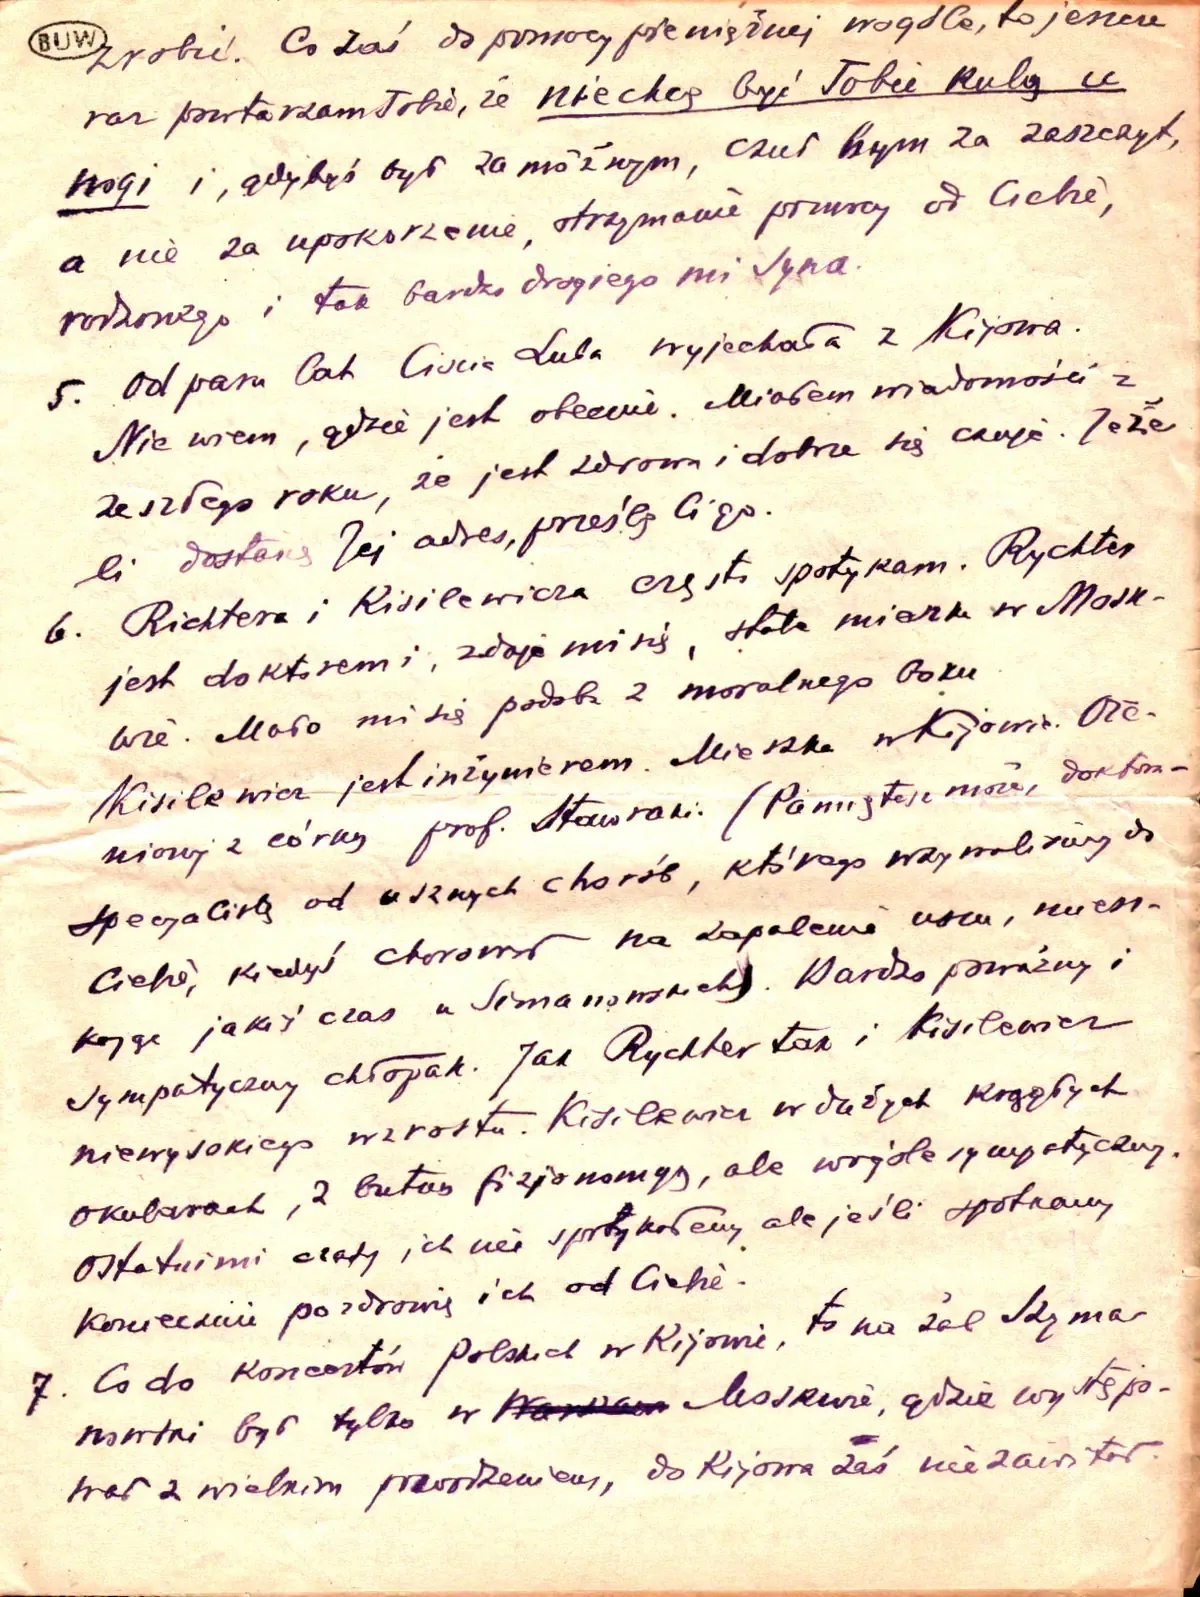 BUW
zrobić. Co zaś do pomocy pieniężnej wogóle, to jeszcze
raz powtarzam Tobie, że niechcę być Tobie kulą u
nogi i, gdybyś był zamóżnym, czuł bym za zaszczyt,
a nie za upokorzenie, otrzymanie pomocy od Ciebie,
rodzonego i tak bardzo drogiego mi Syna.
5. Od paru lat Ciocia Luba wyjechała z Kijowa.
Nie wiem, gdzie jest obecnie. Miałem wiadomości z
zeszłego roku, że jest zdrowa i dobrze się czuje. Jeże
li dostanę Jej adres, prześlę Ci go.
6. Richtera i Kisilewicza często spotykam. Rychter
jest doktorem i, zdaje mi się, stale mieszka w Mosk-
wie. Mało mi się podoba z moralnego boku
Kisilewicz jest inżynierem. Mieszka w Kijowie. Oże-
niony z córką prof. (Pamiętasz może, doktora-
specjalistę od usznych chorób, którego wzywaliśmy do
Ciebie, kiedyś chorował na zapalenie uszu, miesz-
kając jakiś czas u Simanowskich). Bardzo poważny i
sympatyczny chłopak. Jak Rychter tak i Kisilewicz
niewysokiego wzrostu. Kisilewicz w dużych krągłych
okularach, z butną fizjonomją, ale wogóle sympatyczny.
Ostatnimi czasy ich nie spotykałem, ale jeśli spotkamy
koniecznie pozdrowię ich od Ciebie.
7. Co do koncertów Polskich w Kijowie, to na żal Szyma-
nowski był tylko w Moskwie, gdzie występo-
wał z wielkim powodzeniem, do Kijowa zaś nie zawitał.